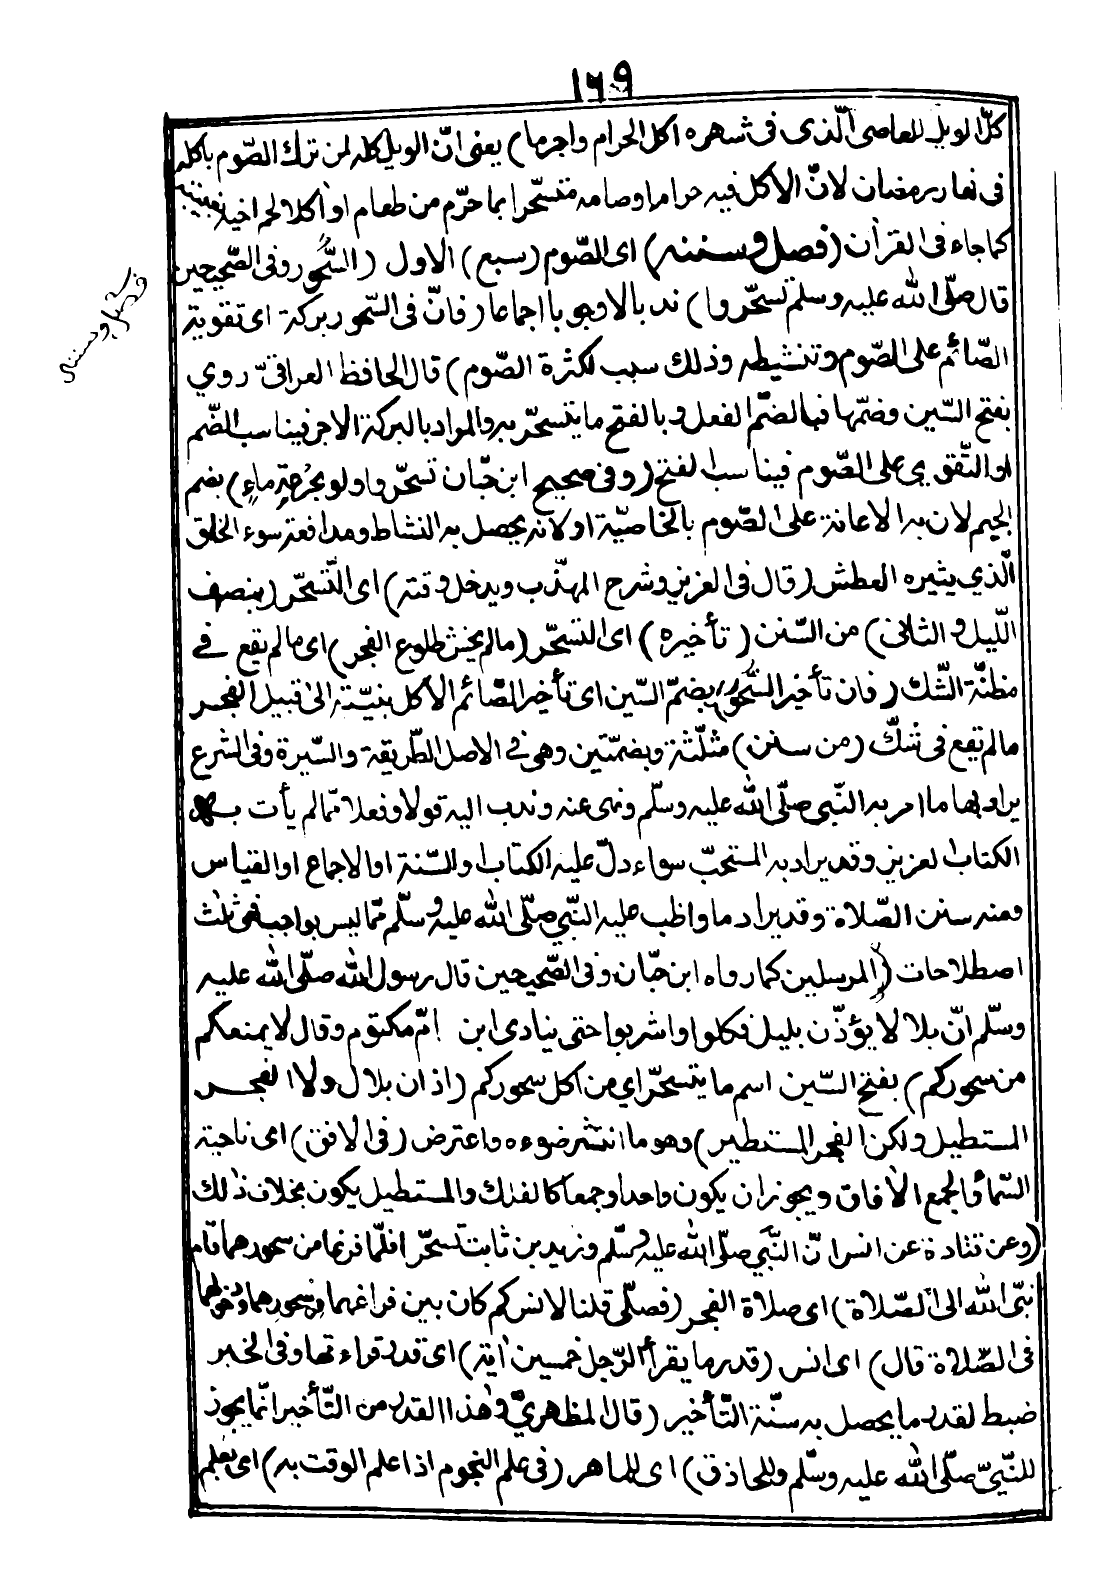 ١٦٩
كلّ الويل للعاصى الّذى فى شهره اكل الحرام واجرما) يعنى انّ الويل كله لمن ترك الصّوم باكله
فى نهار رمضان لانّ الاكل فيه حراما وصامه متسحّرا بما حرّم من طعام او اكلا لحم اخيه بغيبته
كما جاء فى القرأن (فصل وسننه) اى الصّوم (سبع) الاول (السُّحور وفى الصّحيحين
قال صلّى الله عليه وسلم تسحّروا) ندبا لا وجوبا اجماعا (فانّ فى السّحور بركة اى تقوية
الصّائم على الصّوم وتنشيطه وذلك سبب لكثرة الصّوم) قال الحافظ العراقىّ روي
بفتح السّين وضمّها فبالضمّ الفعل وبالفتح ما يتسحّر به والمراد بالبركة الاجر فيناسب الضّم
او التّقوي على الصّوم فيناسب الفتح (وفى صحيح ابن حبّان تسحّروا ولو بجرعةِ ماءٍ) بضم
الجيم لان به الاعانة على الصّوم بالخاصيّة او لانه يحصل به النشاط ومدافعة سوء الخلق
الّذي يثيره العطش (قال فى العزيز وشرح المهذّب ويدخل وقته) اى التّسحّر (بنصف
اللّيل و الثانى) من السّنن (تأخيره) اى التسحّر (ما لم يخش طلوع الفجر) اى ما لم يقع في
مظنّة الشّك (فان تأخير السُّحور) بضمّ السّين اى تأخير الصّائم الأكل بنيّته الى قبيل الفجر
ما لم يقع فى شكّ (من سنن) مثلّثة وبضمّتين وهى في الاصل الطّريقة والسّيرة وفى الشرع
يراد بها ما امر به النّبي صلّى الله عليه وسلّم ونهى عنه وندب اليه قولا وفعلا ممّا لم يأت به
الكتاب العزيز وقد يراد به المستحبّ سواء دلّ عليه الكتاب او السّنة او الاجماع او القياس
ومنه سنن الصّلاة وقد يراد ما واظب عليه النّبي صلّى الله عليه وسلّم ممّا ليس بواجب فهى ثلث
اصطلاحات (المرسلين كما رواه ابن حبّان وفى الصّحيحين قال رسول الله صلّى الله عليه
وسلّم انّ بلالا يؤذّن بليل فكلوا واشربوا حتى ينادى ابن امّ مكتوم وقال لا يمنعكم
من سحوركم) بفتح السّين اسم ما يتسحّر اي من اكل سحوركم (اذان بلال ولا الفجر
المستطيل ولكن الفجر المستطير) وهو ما انتشر ضوءه واعترض (فى الافق) اى ناحية
السّماء والجمع الأفاق ويجوز ان يكون واحدا وجمعا كالفلك والمستطيل يكون بخلاف ذلك
(وعن قتادة عن انس انّ النّبي صلّى الله عليه وسلّم وزيد بن ثابت تسحّرا فلمّا فرغا من سحورهما قام
نبىّ الله الى الصّلاة) اى صلاة الفجر (فصلّى قلنا لانس كم كان بين فراغهما من سحورهما ودخولهما
فى الصّلاة قال) اى انس (قدر ما يقرأ الرّجل خمسين أية) اى قدر قراءتها وفى الخبر
ضبط لقدر ما يحصل به سنّة التّأخير (قال المظهريّ وهذا القدر من التّأخير انّما يجوز
للنّبيّ صلّى الله عليه وسلّم وللحاذق) اى للماهر (فى علم النجوم اذا علم الوقت به) اى بعلم
فصل وسننه